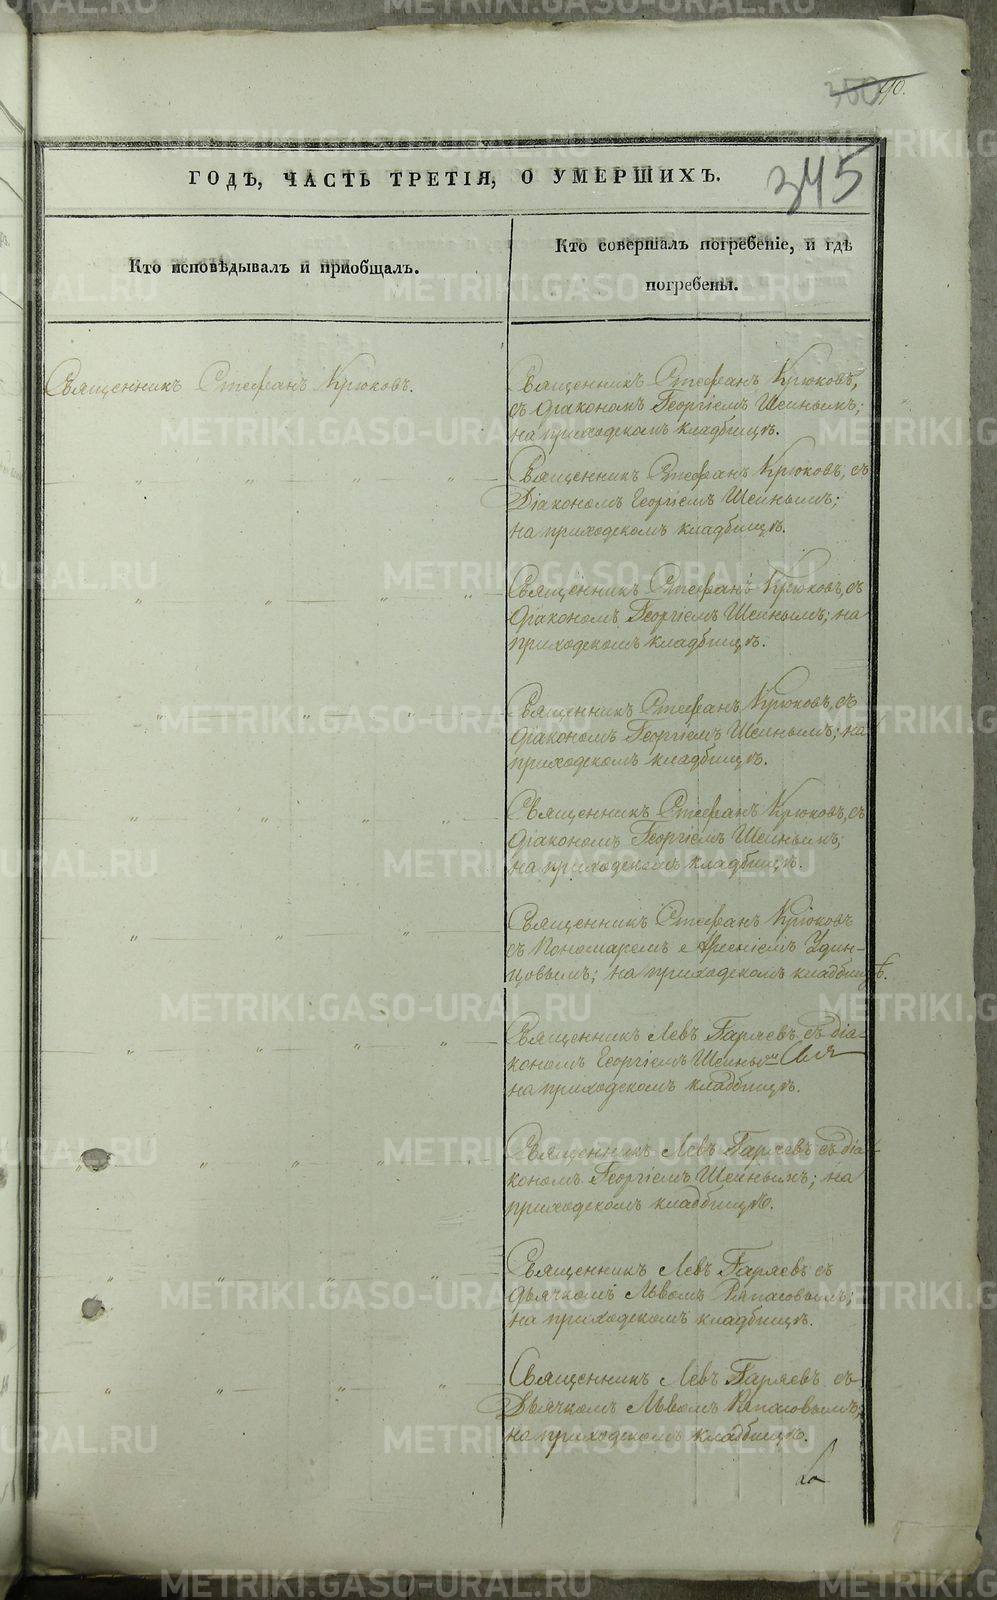 350 90.
ГОДЪ, ЧАСТЬ ТРЕТІЯ, О УМЕРШИХЪ.
345
Кто исповѣдывалъ и пріобщалъ.
Кто совершалъ погребеніе, и гдѣ
погребены.
Священникъ Стефанъ Крюковъ.
Священникъ Стефанъ Крюковъ,
съ діакономъ Георгіемъ Шеинымъ;
на приходскомъ кладбищѣ.
Священникъ Стефанъ Крюковъ, съ
Діакономъ Георгіемъ Шеинымъ;
на приходскомъ кладбищѣ.
Священникъ Стефанъ Крюковъ, съ
діакономъ Георгіемъ Шеинымъ; на
приходскомъ кладбищѣ.
Священникъ Стефанъ Крюковъ, съ
діакономъ Георгіемъ Шеинымъ; на
приходскомъ кладбищѣ.
Священникъ Стефанъ Крюковъ, съ
діакономъ Георгіемъ Шеинымъ;
на приходскомъ кладбищѣ.
Священникъ Стефанъ Крюковъ
съ Пономаремъ Арсеніемъ Удин-
цовымъ; на приходскомъ кладбищѣ.
Священникъ Левъ Гаряевъ съ діа-
кономъ Георгіемъ Шеинымъ
на приходскомъ кладбищѣ.
Священникъ Левъ Гаряевъ съ діа-
кономъ Георгіемъ Шеинымъ; на
приходскомъ кладбищѣ.
Священникъ Левъ Гаряевъ съ
дьячкомъ Львомъ
на приходскомъ кладбищѣ.
Священникъ Левъ Гаряевъ съ
Дьячкомъ Львомъ
на приходскомъ кладбищѣ.
METRIKI.GASO-URAL.RU